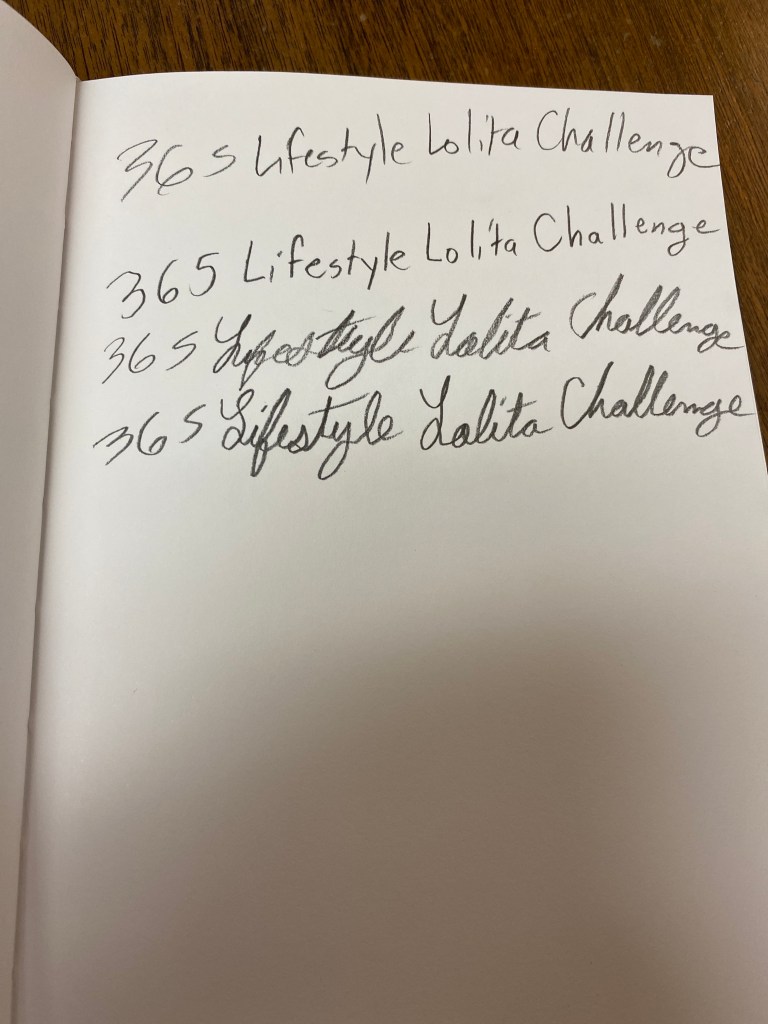 365 Lifestyle Lolita Challenge
365 Lifestyle Lolita Challenge
365 Lifestyle Lolita Challenge
365 Lifestyle Lolita Challenge